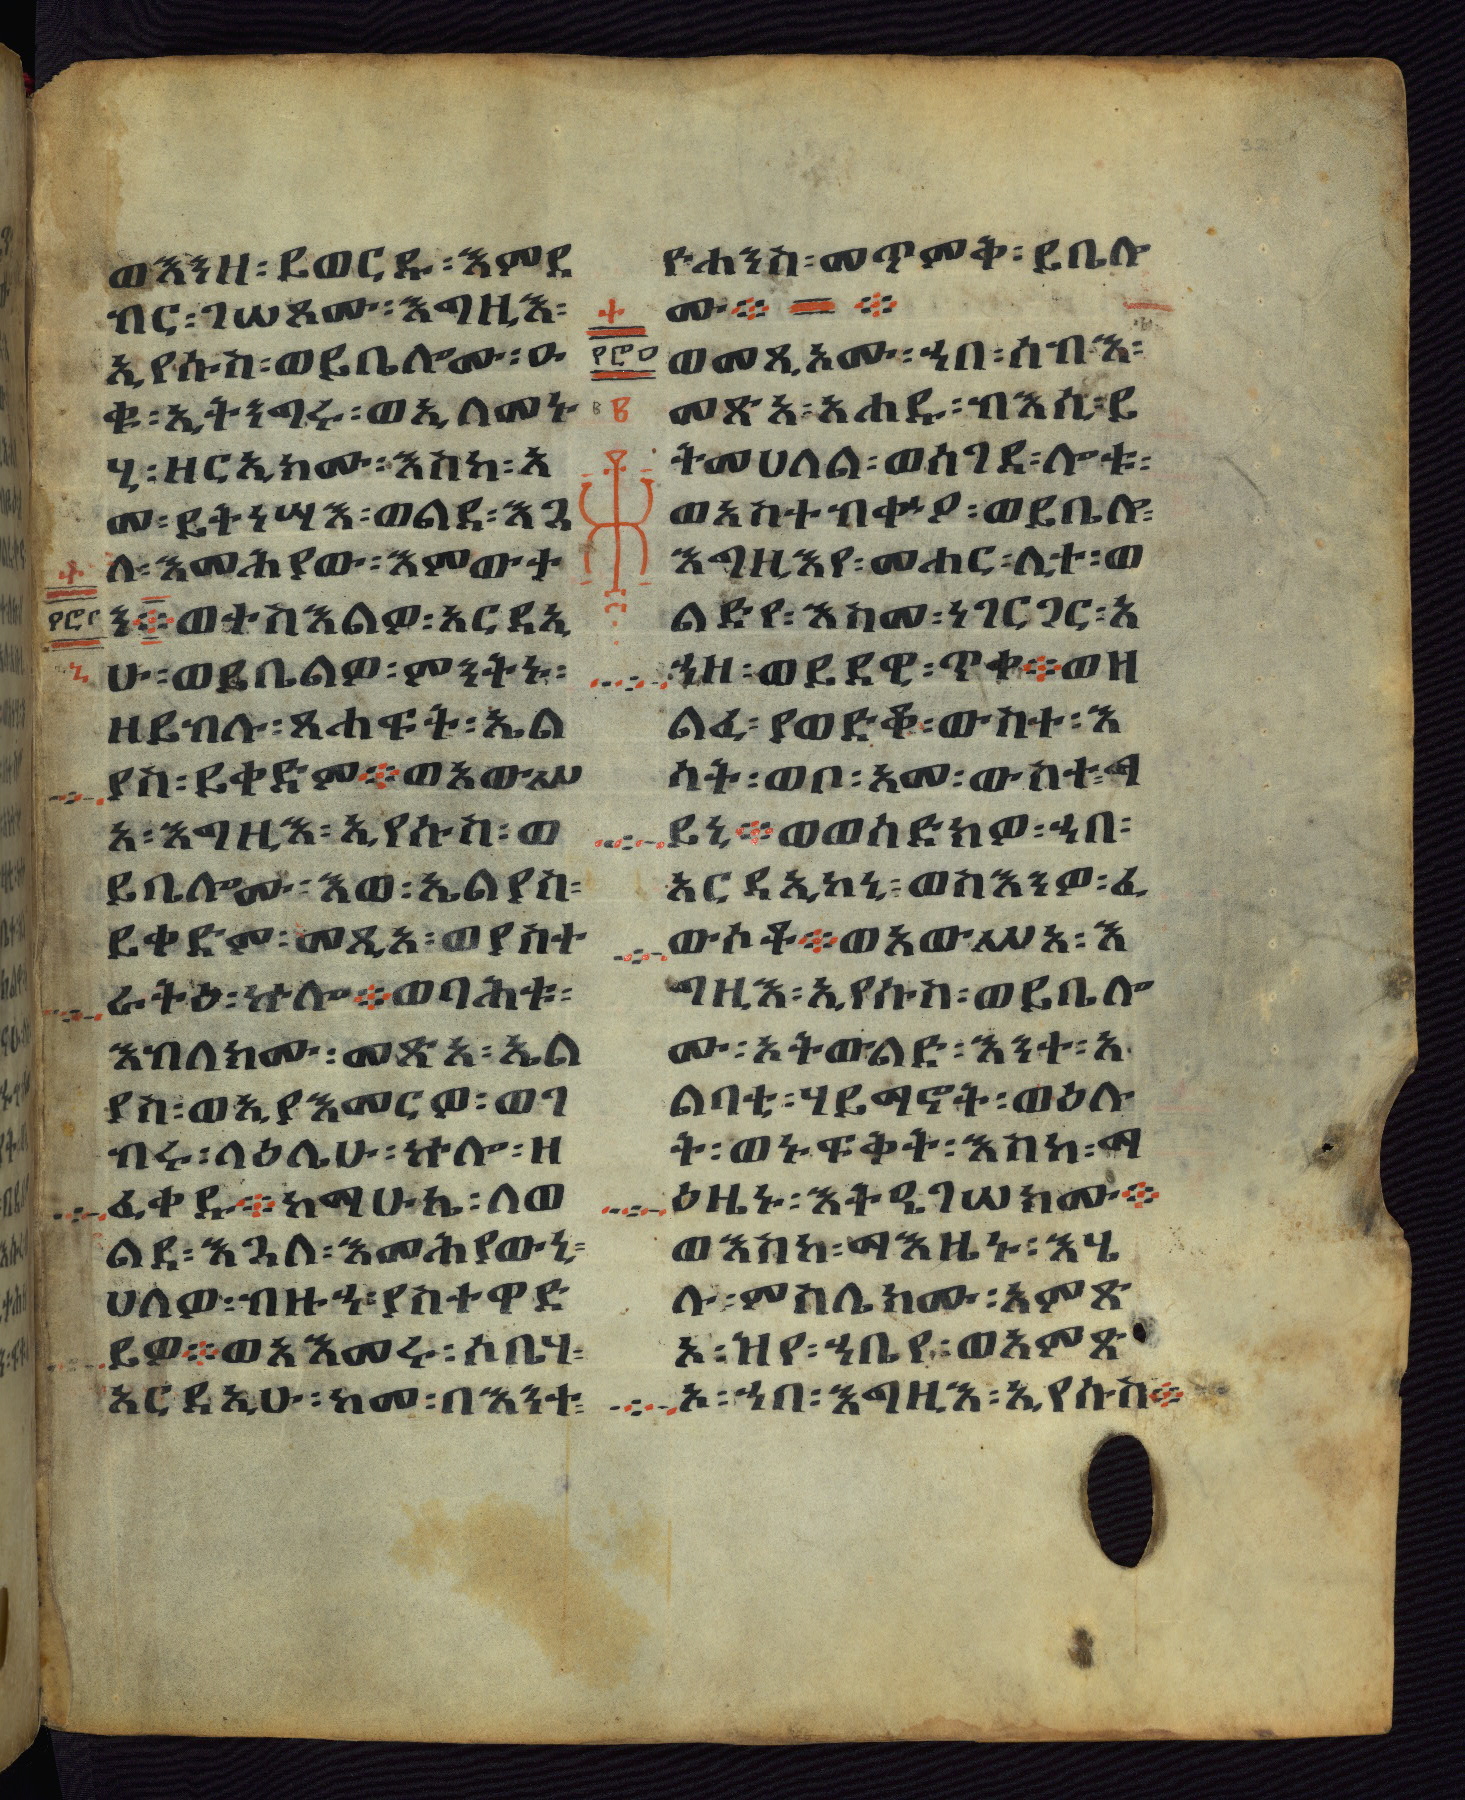 ወእንዘ፡ይወርዱ፡እምደ
ብር፡ገሠጾሙ፡እግዚእ፡
ኢየሱስ፡ወይቤሎሙ፡ዑ
ቁ፡ኢትንግሩ፡ወኢለመኑ
ሂ፡ዘርኢክሙ፡እስከ፡አ
መ፡ይትነሣእ፡ወልደ፡እጓ
ለ፡እመሕያው፡እምውተ
ን፨ወተስእልዎ፡አርዳኢ
ሁ፡ወይቤልዎ፡ምንትኑ፡
ዘይብሉ፡ጸሐፍት፡ኤል
ያስ፡ይቀድም፨ወአውሥ
አ፡እግዚእ፡ኢየሱስ፡ወ
ይቤሎሙ፡እወ፡ኤልያስ፡
ይቀድም፡መጺአ፡ወያስተ
ራትዕ፡ኵሎ፨ወባሕቱ፡
እብለክሙ፡መጽአ፡ኤል
ያስ፡ወኢያእመርዎ፡ወገ
ብሩ፡ላዕሌሁ፡ኵሎ፡ዘ
ፈቀዱ፨ከማሁኬ፡ለወ
ልደ፡እጓለ፡እመሕያውኒ፡
ሀለዎ፡ብዙኀ፡ያስተዋድ
ይዎ፨ወአእመሩ፡ሶቤሃ፡
አርዳኢሁ፡ከመ፡በእንተ
ዮሐንስ፡መጥምቅ፡ይቤሎ
ሙ፨ ፨
ወመጺኦሙ፡ኀበ፡ሰብእ፡
መጽአ፡አሐዱ፡ብእሲ፡ይ
ትመሀለል፡ወሰገደ፡ሎቱ፡
ወአስተብቍዖ፡ወይቤሎ፡
እግዚእየ፡መሐር፡ሊተ፡ወ
ልድየ፡እስመ፡ነገርጋር፡አ
ኀዘ፡ወይደዊ፡ጥቀ፨ወዘ
ልፈ፡ያወድቆ፡ውስተ፡እ
ሳት፡ወቦ፡አመ፡ውስተ፡ማ
ይኒ፨ወወሰድክዎ፡ኀበ፡
አርዳኢከኒ፡ወስእንዎ፡ፈ
ውሶቶ፨ወአውሥአ፡እ
ግዚእ፡ኢየሱስ፡ወይቤሎ
ሙ፡ኦትውልድ፡እንተ፡አ
ልባቲ፡ሃይማኖት፡ወዕሉ
ት፡ወኑፍቅት፡እስከ፡ማ
ዕዜኑ፡እትዔገሠክሙ፨
ወእስከ፡ማእዜኑ፡እሄ
ሉ፡ምስሌክሙ፡አምጽ
እ፡ዝየ፡ኀቤየ፡ወአምጽ
አ፡ኀበ፡እግዚእ፡ኢየሱስ፨